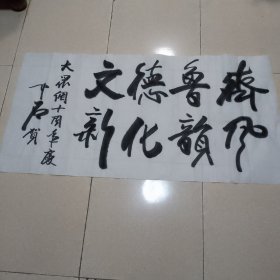 齐风
鲁韵
德化
文新
大众网十周年庆
下石贺